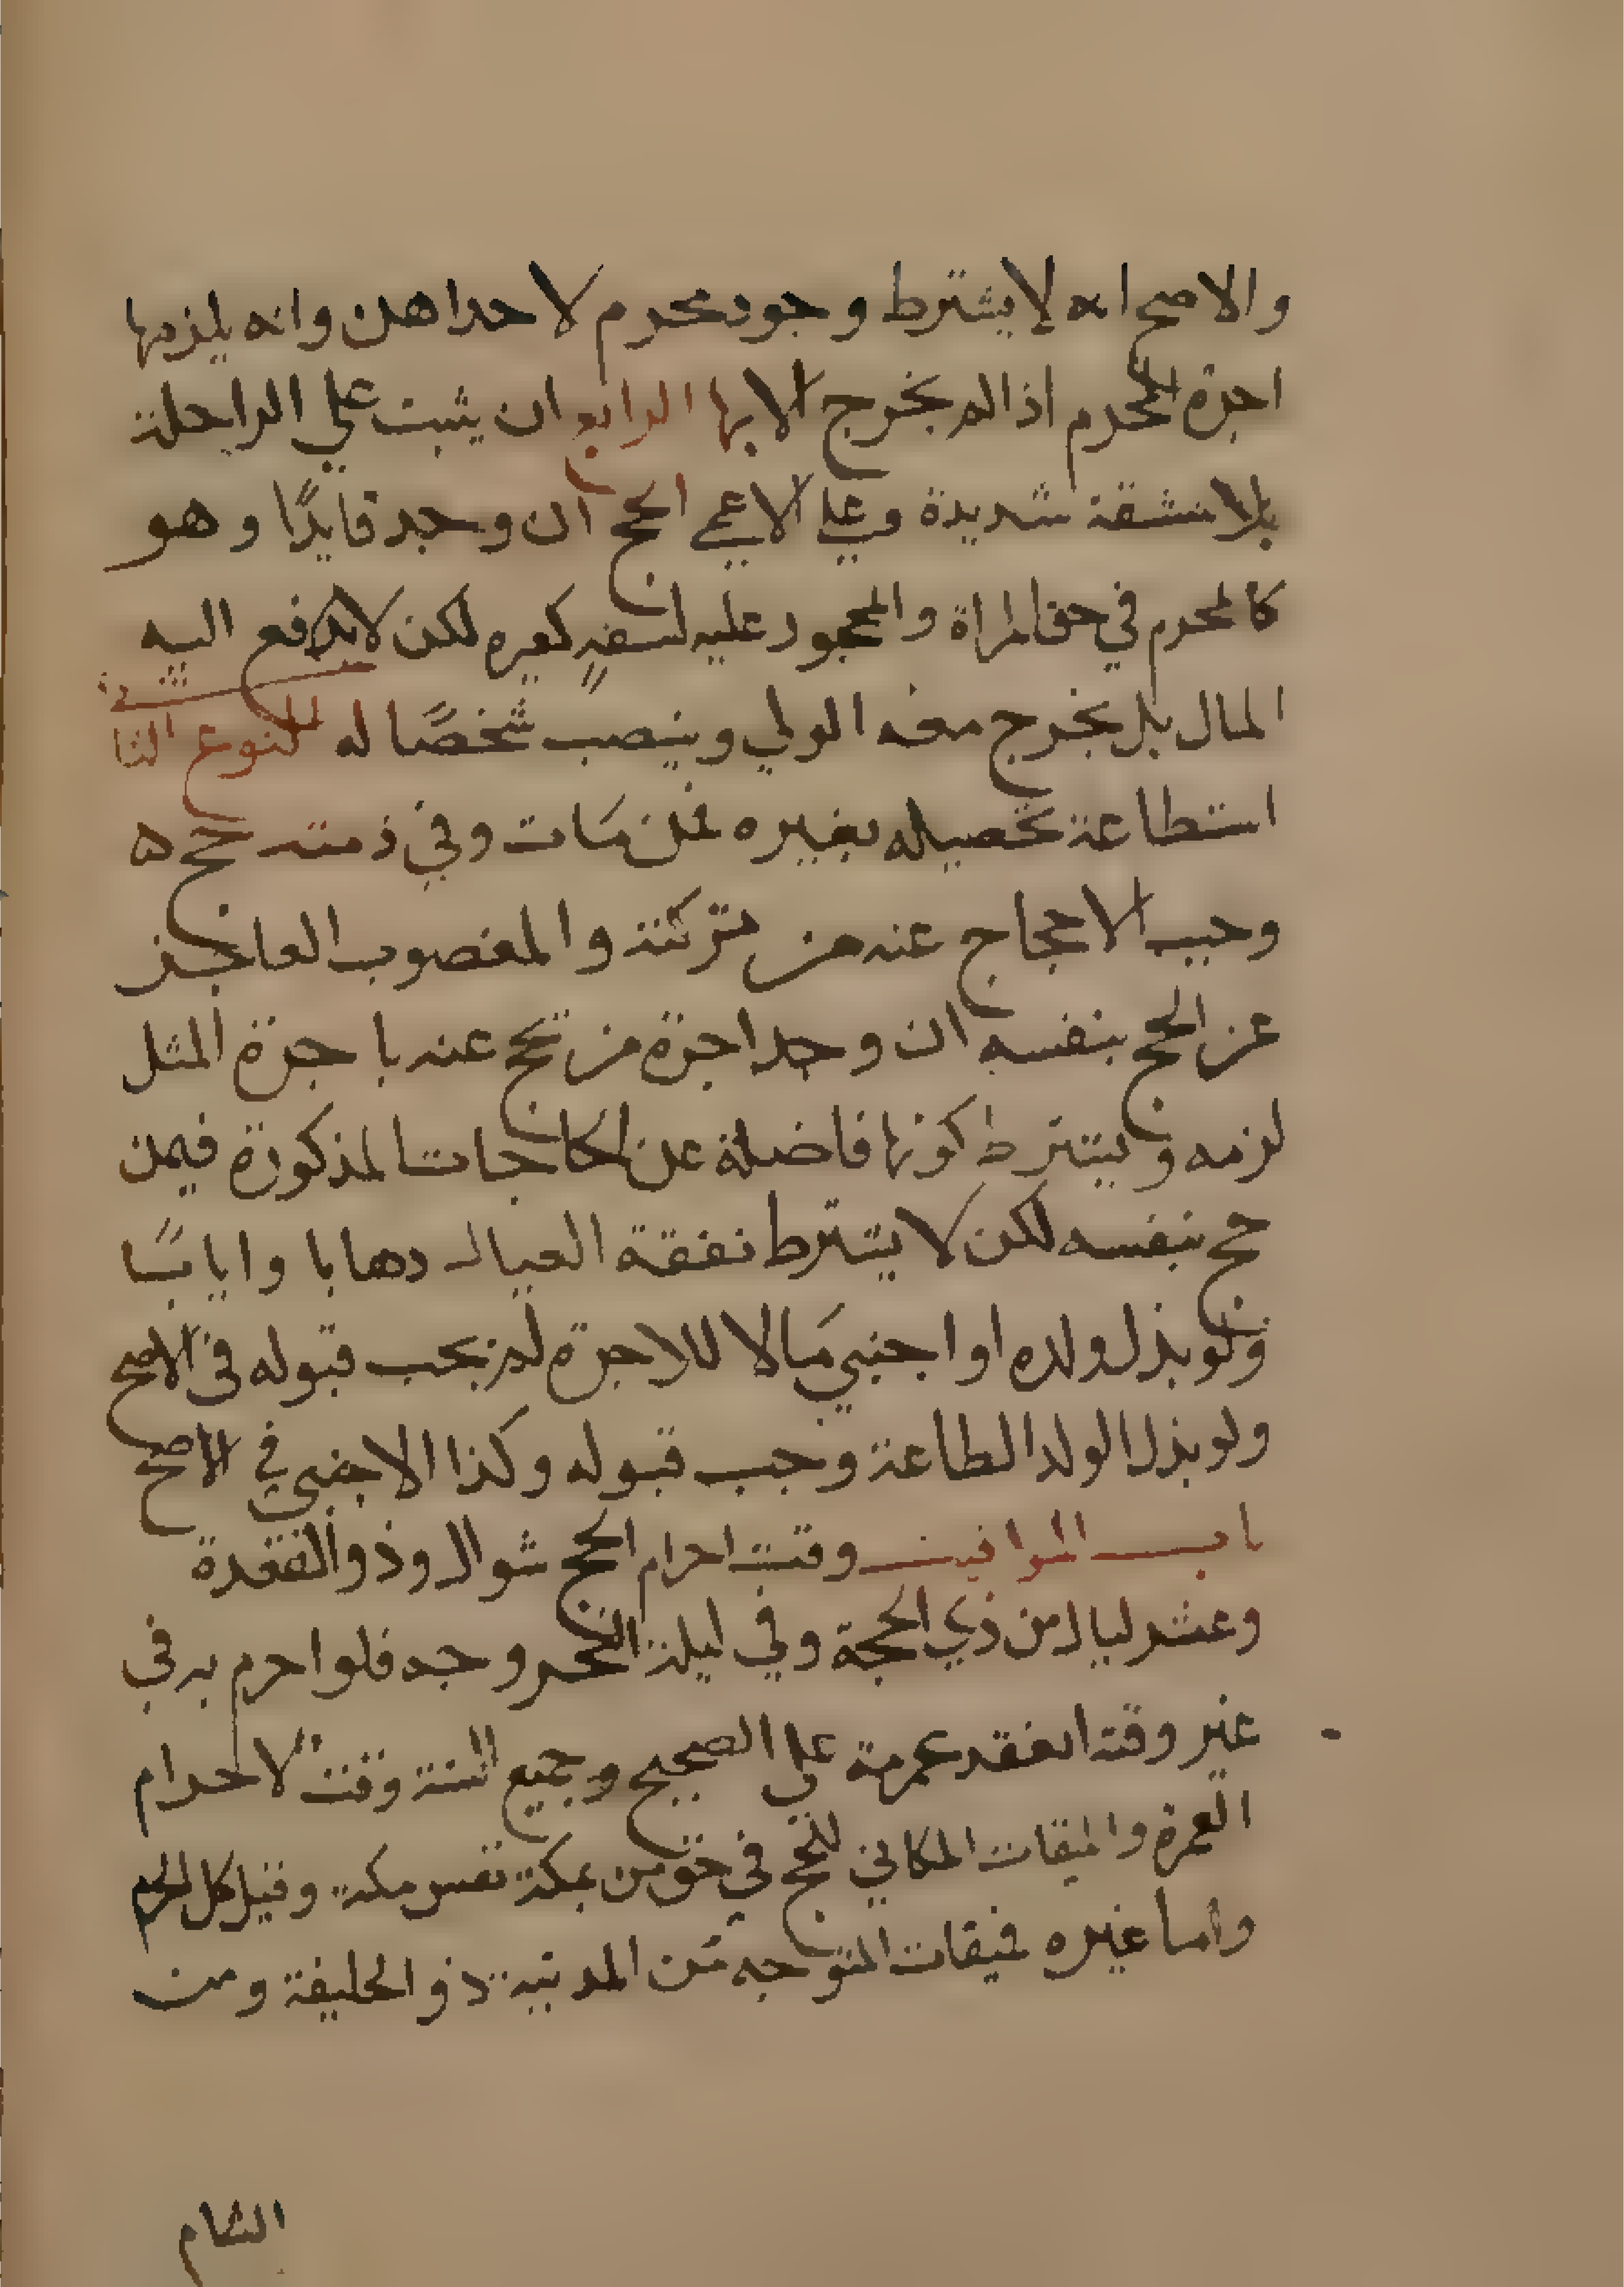 والاصح انه لا يشترط وجود محرم لاحداهن وانه يلزمها
اجرة المحرم اذا لم يخرج الا بها الرابع ان يثبت علي الراحلة
بلا مشقة شديدة وعلي الاعمي الحج ان وجد قايدًا وهو
كالمحرم في حق المراة والمحجور عليه لسفهٍ كغيره لكن لا يدفع اليه
المال بل يخرج معه الولي وينصب شخصًا له النوع الثاني
استطاعة تحصيله بغيره فمن مات وفي ذمته حج ه
وجب الاحجاج عنه من تركته والمغصوب العاجز
عن الحج بنفسه ان وجد اجرة من يحج عنه باجرة المثل
لزمه ويشترط كونها فاضلة عن الحاجات المذكورة فيمن
حج بنفسه لكن لا يشترط نفقة العيال دهابا وايابًا
ولو بذل ولده او اجنبي مالا للاجرة لم يجب قبوله في الاصح
ولو بذل الولد الطاعة وجب قبوله وكذا الاجنبي في الاصح
باب المواقيت وقت احرام الحج شوال وذو القعدة
وعشر ليال من ذي الحجة وفي ليلة النحر وجه فلو احرم به في
غير وقته انعقد عمرة علي الصحيح وجميع السنة وقت لاحرام
العمرة والميقات المكاني للحج في حق من بمكة نفس مكة وقيل كل الحرم
واما غيره فميقات المتوجه من المدينة ذو الحليفة ومن
الشام